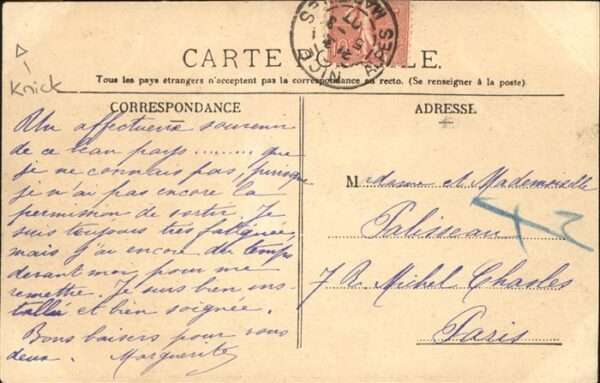 Knick
NICE
ALPES MARITIMES
CARTE POSTALE.
Tous les pays étrangers n'acceptent pas la correspondance au recto. (Se renseigner à la poste).
CORRESPONDANCE
Un affectueux souvenir
de ce beau pays........ que
je ne connais pas, puisque
je n'ai pas encore la
permission de sortir. Je
suis toujours très fatiguée,
mais j'ai encore du temps
devant moi pour me
remettre. Je suis bien ins-
tallée et bien soignée.
Bons baisers pour vous
deux. Marguerite
ADRESSE
Madame et Mademoiselle
Palisseau
7 R. Michel Chasles
Paris